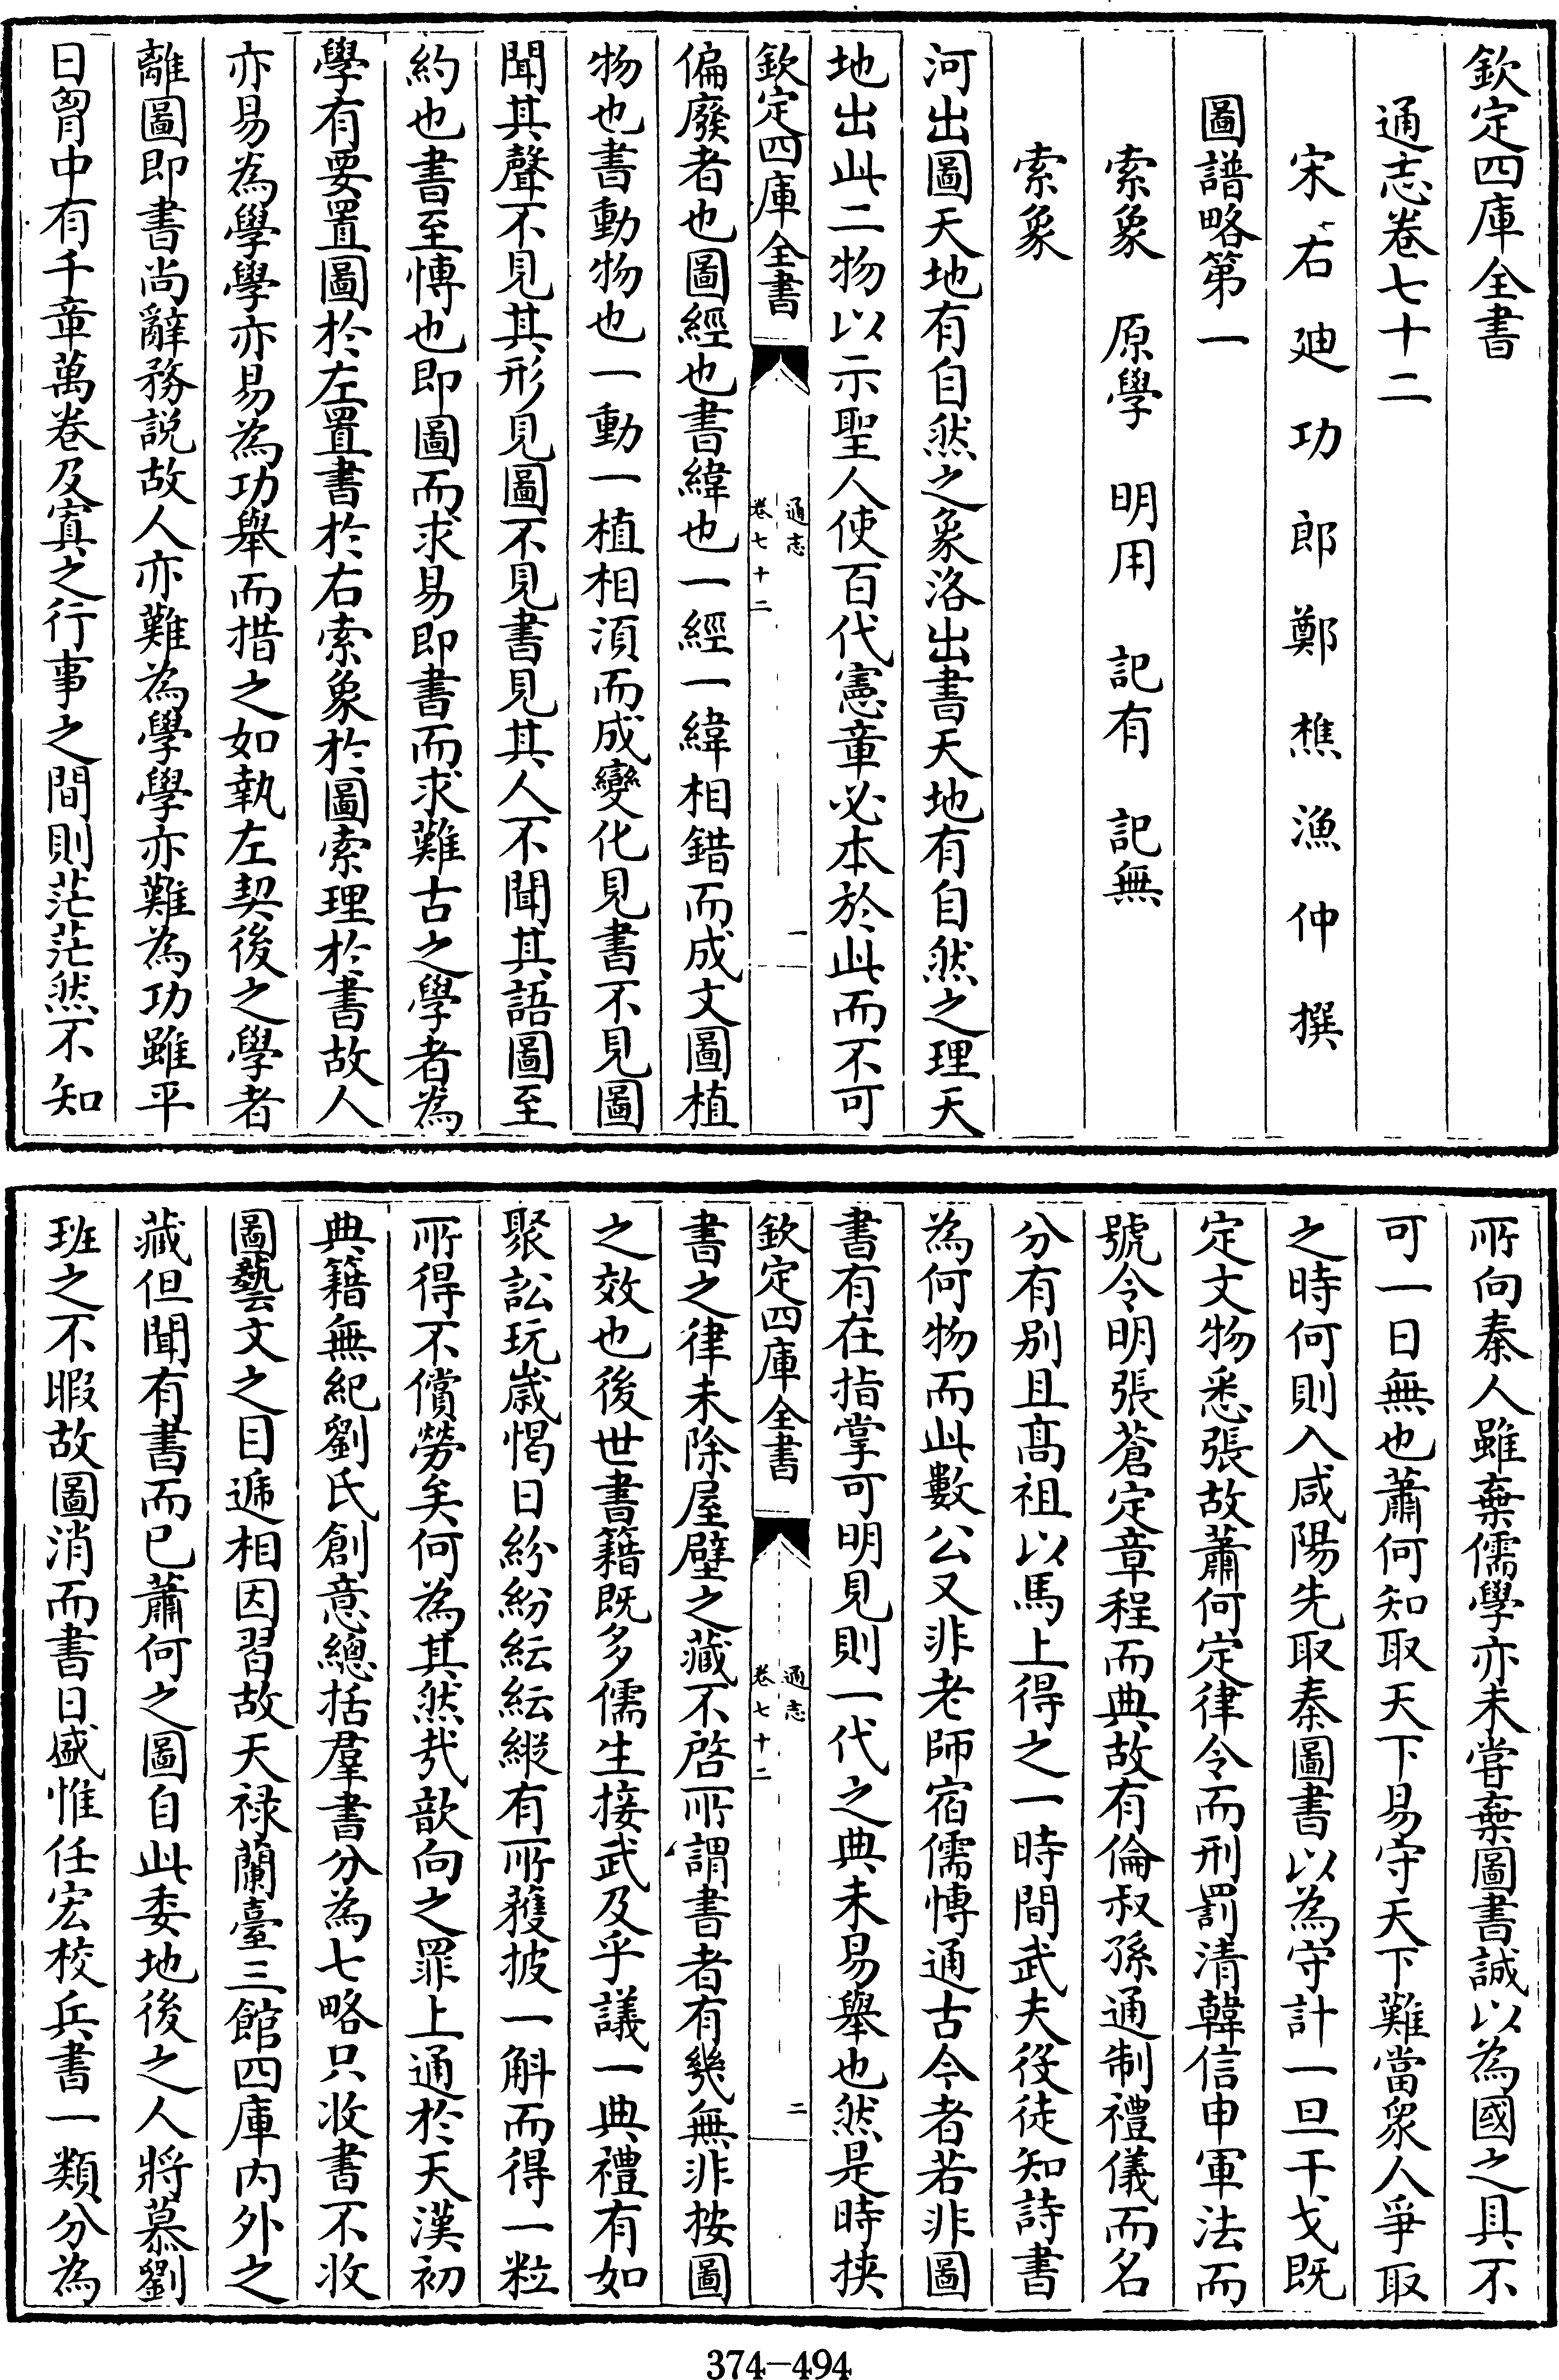 欽定四庫全書
通志卷七十二
宋右迪功郎鄭樵漁仲撰
圖譜略第一
索象　原學　明用　記有　記無
索象
河出圖天地有自然之象洛出書天地有自然之理天
地出此二物以示聖人使百代憲章必本於此而不可
欽定四庫全書
通志
卷七十二
一
偏廢者也圖經也書緯也一經一緯相錯而成文圖植
物也書動物也一動一植相須而成變化見書不見圖
聞其聲不見其形見圖不見書見其人不聞其語圖至
約也書至博也即圖而求易即書而求難古之學者為
學有要置圖於左置書於右索象於圖索理於書故人
亦易為學學亦易為功舉而措之如執左契後之學者
離圖即書尚辭務説故人亦難為學學亦難為功雖平
日胷中有千章萬卷及寘之行事之間則茫茫然不知
所向秦人雖棄儒學亦未甞棄圖書誠以為國之具不
可一日無也蕭何知取天下易守天下難當衆人爭取
之時何則入咸陽先取秦圖書以為守計一旦干戈既
定文物悉張故蕭何定律令而刑罰清韓信申軍法而
號令明張蒼定章程而典故有倫叔孫通制禮儀而名
分有别且髙祖以馬上得之一時間武夫役徒知詩書
為何物而此數公又非老師宿儒博通古今者若非圖
書有在指掌可明見則一代之典未易舉也然是時挾
欽定四庫全書
通志
卷七十二
二
書之律未除屋壁之藏不啓所謂書者有幾無非按圖
之效也後世書籍既多儒生接武及乎議一典禮有如
聚訟玩嵗愒日紛紛紜紜縱有所獲披一斛而得一粒
所得不償勞矣何為其然哉歆向之罪上通於天漢初
典籍無紀劉氏創意總括羣書分為七略只收書不收
圖藝文之目遞相因習故天禄蘭臺三館四庫内外之
藏但聞有書而已蕭何之圖自此委地後之人將慕劉
班之不暇故圖消而書日盛惟任宏校兵書一類分為
374—494